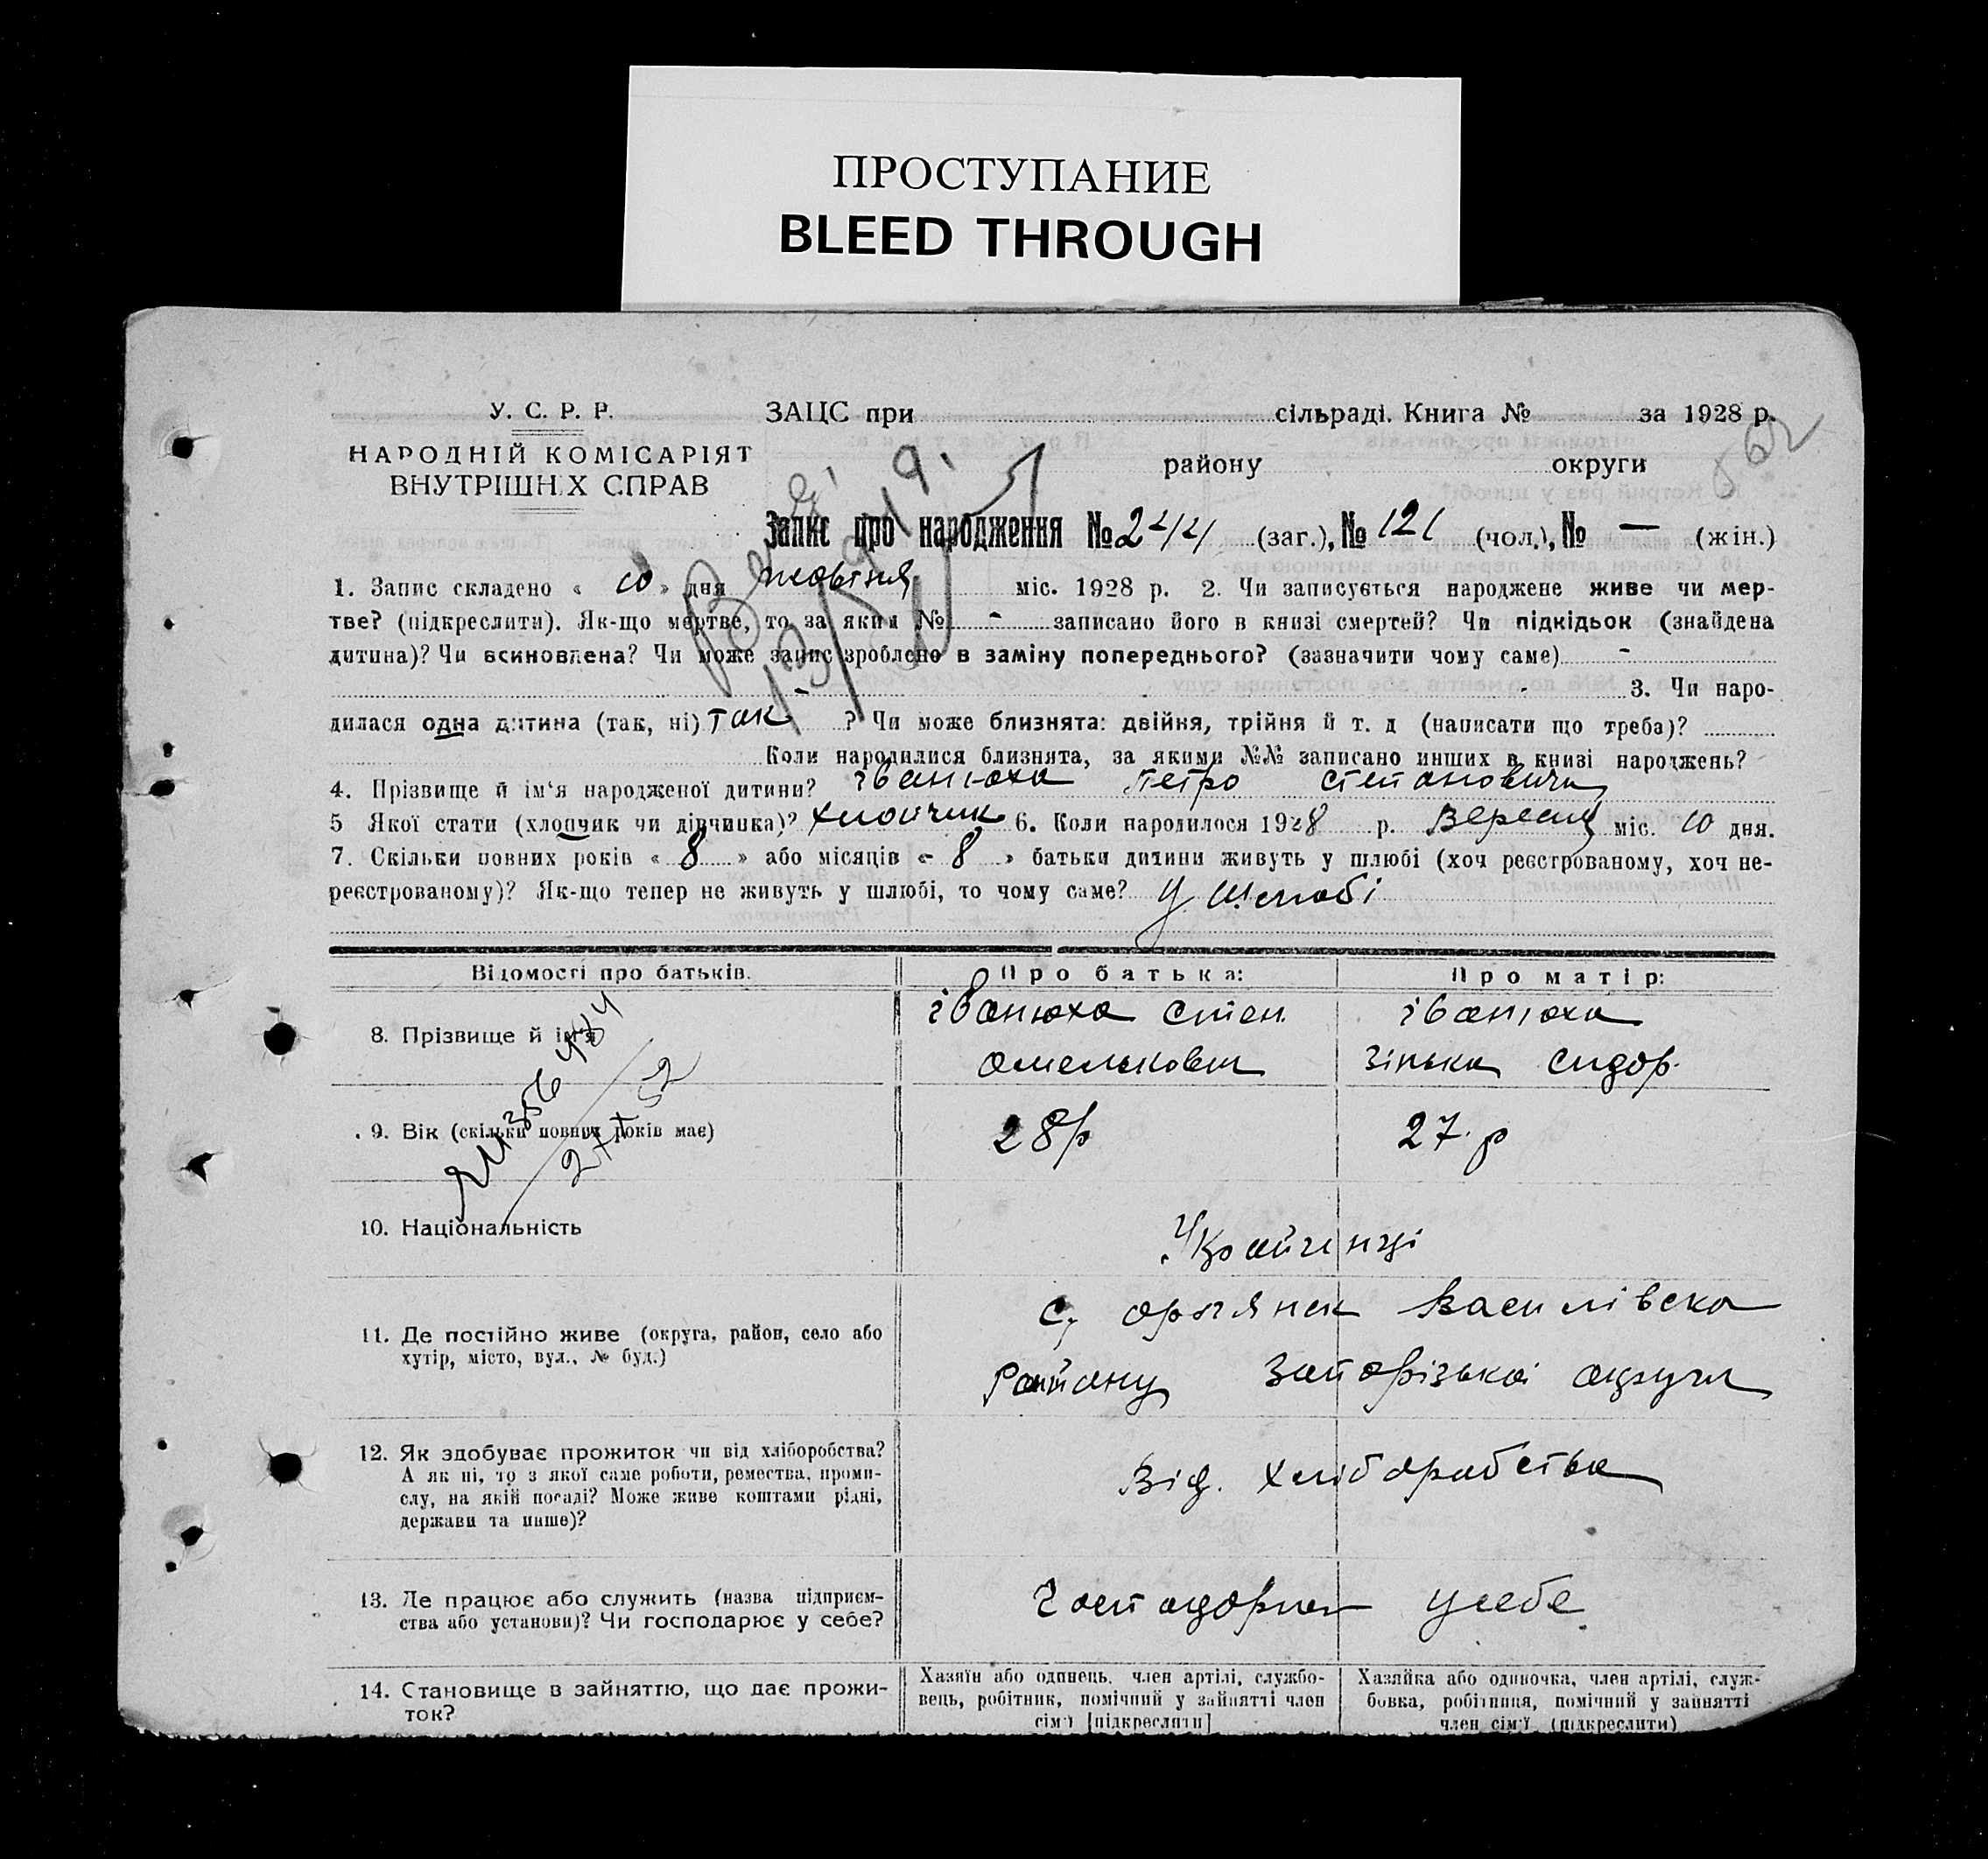 ПРОСТУПАНИЕ
BLEED THROUGH
У. С. Р. Р.
НАРОДНІЙ КОМІСАРІЯТ
ВНУТРІШНІХ СПРАВ
ЗАЦС при сільраді. Книга № за 1928 р.
району округи
Запис про народження № 244 (заг.), № 121 (чол.), № — (жін.)
1. Запис складено « 10 » дня жовтня міс. 1928 р. 2. Чи записується народжене живе чи мер-
тве? (підкреслити). Як-що мертве, то за яким № - записано його в книзі смертей? Чи підкідьок (знайдена
дитина)? Чи всиновлена? Чи може запис зроблено в заміну попереднього? (зазначити чому саме) -
- 3. Чи наро-
дилася одна дитина (так, ні) так ? Чи може близнята: двійня, трійня й т. д (написати що треба)?
Коли народилися близнята, за якими №№ записано инших в книзі народжень?
4. Прізвище й ім'я народженої дитини? іванюха Петро степанович
5 Якої стати (хлопчик чи дівчинка)? хлопчик 6. Коли народилося 1928 р. Вересня міс. 10 дня.
7. Скільки повних років « 8 » або місяців « 8 » батьки дитини живуть у шлюбі (хоч реєстрованому, хоч не-
реєстрованому)? Як-що тепер не живуть у шлюбі, то чому саме? У шлюбі
Відомості про батьків. Про батька: Про матір:
8. Прізвище й ім'я іванюха степ. іванюха
омелькович зінька сидор.
9. Вік (скільки повних років має) 28р 27.р
10. Національність Українці
11. Де постійно живе (округа, район, село або
хутір, місто, вул., № буд.)
с. орлянск Василівска
Району Запорізької округи
12. Як здобуває прожиток чи від хліборобства?
А як ні, то з якої саме роботи, ремества, проми-
слу, на якій посаді? Може живе коштами рідні,
держави та инше)?
Від. хліборобства
13. Де працює або служить (назва підприєм-
ства або установи)? Чи господарює у себе?
усебе
14. Становище в зайняттю, що дає прожи-
ток?
Хазяїн або одинець, член артілі, службо-
вець, робітник, помічний у зайнятті член
сім'ї [підкреслити]
Хазяйка або одиночка, член артілі, служ-
бовка, робітниця, помічний у зайнятті
член сім'ї (підкреслити)